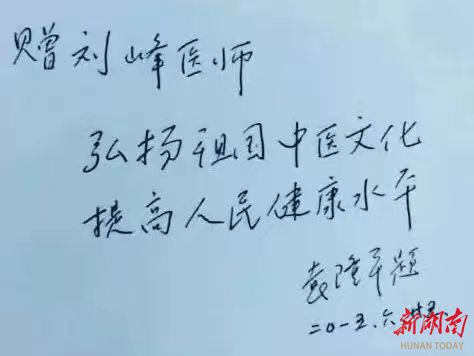 赠刘峰医师
弘扬祖国中医文化
提高人民健康水平
袁隆平题
二0一五.六
新湖南
HUNAN TODAY